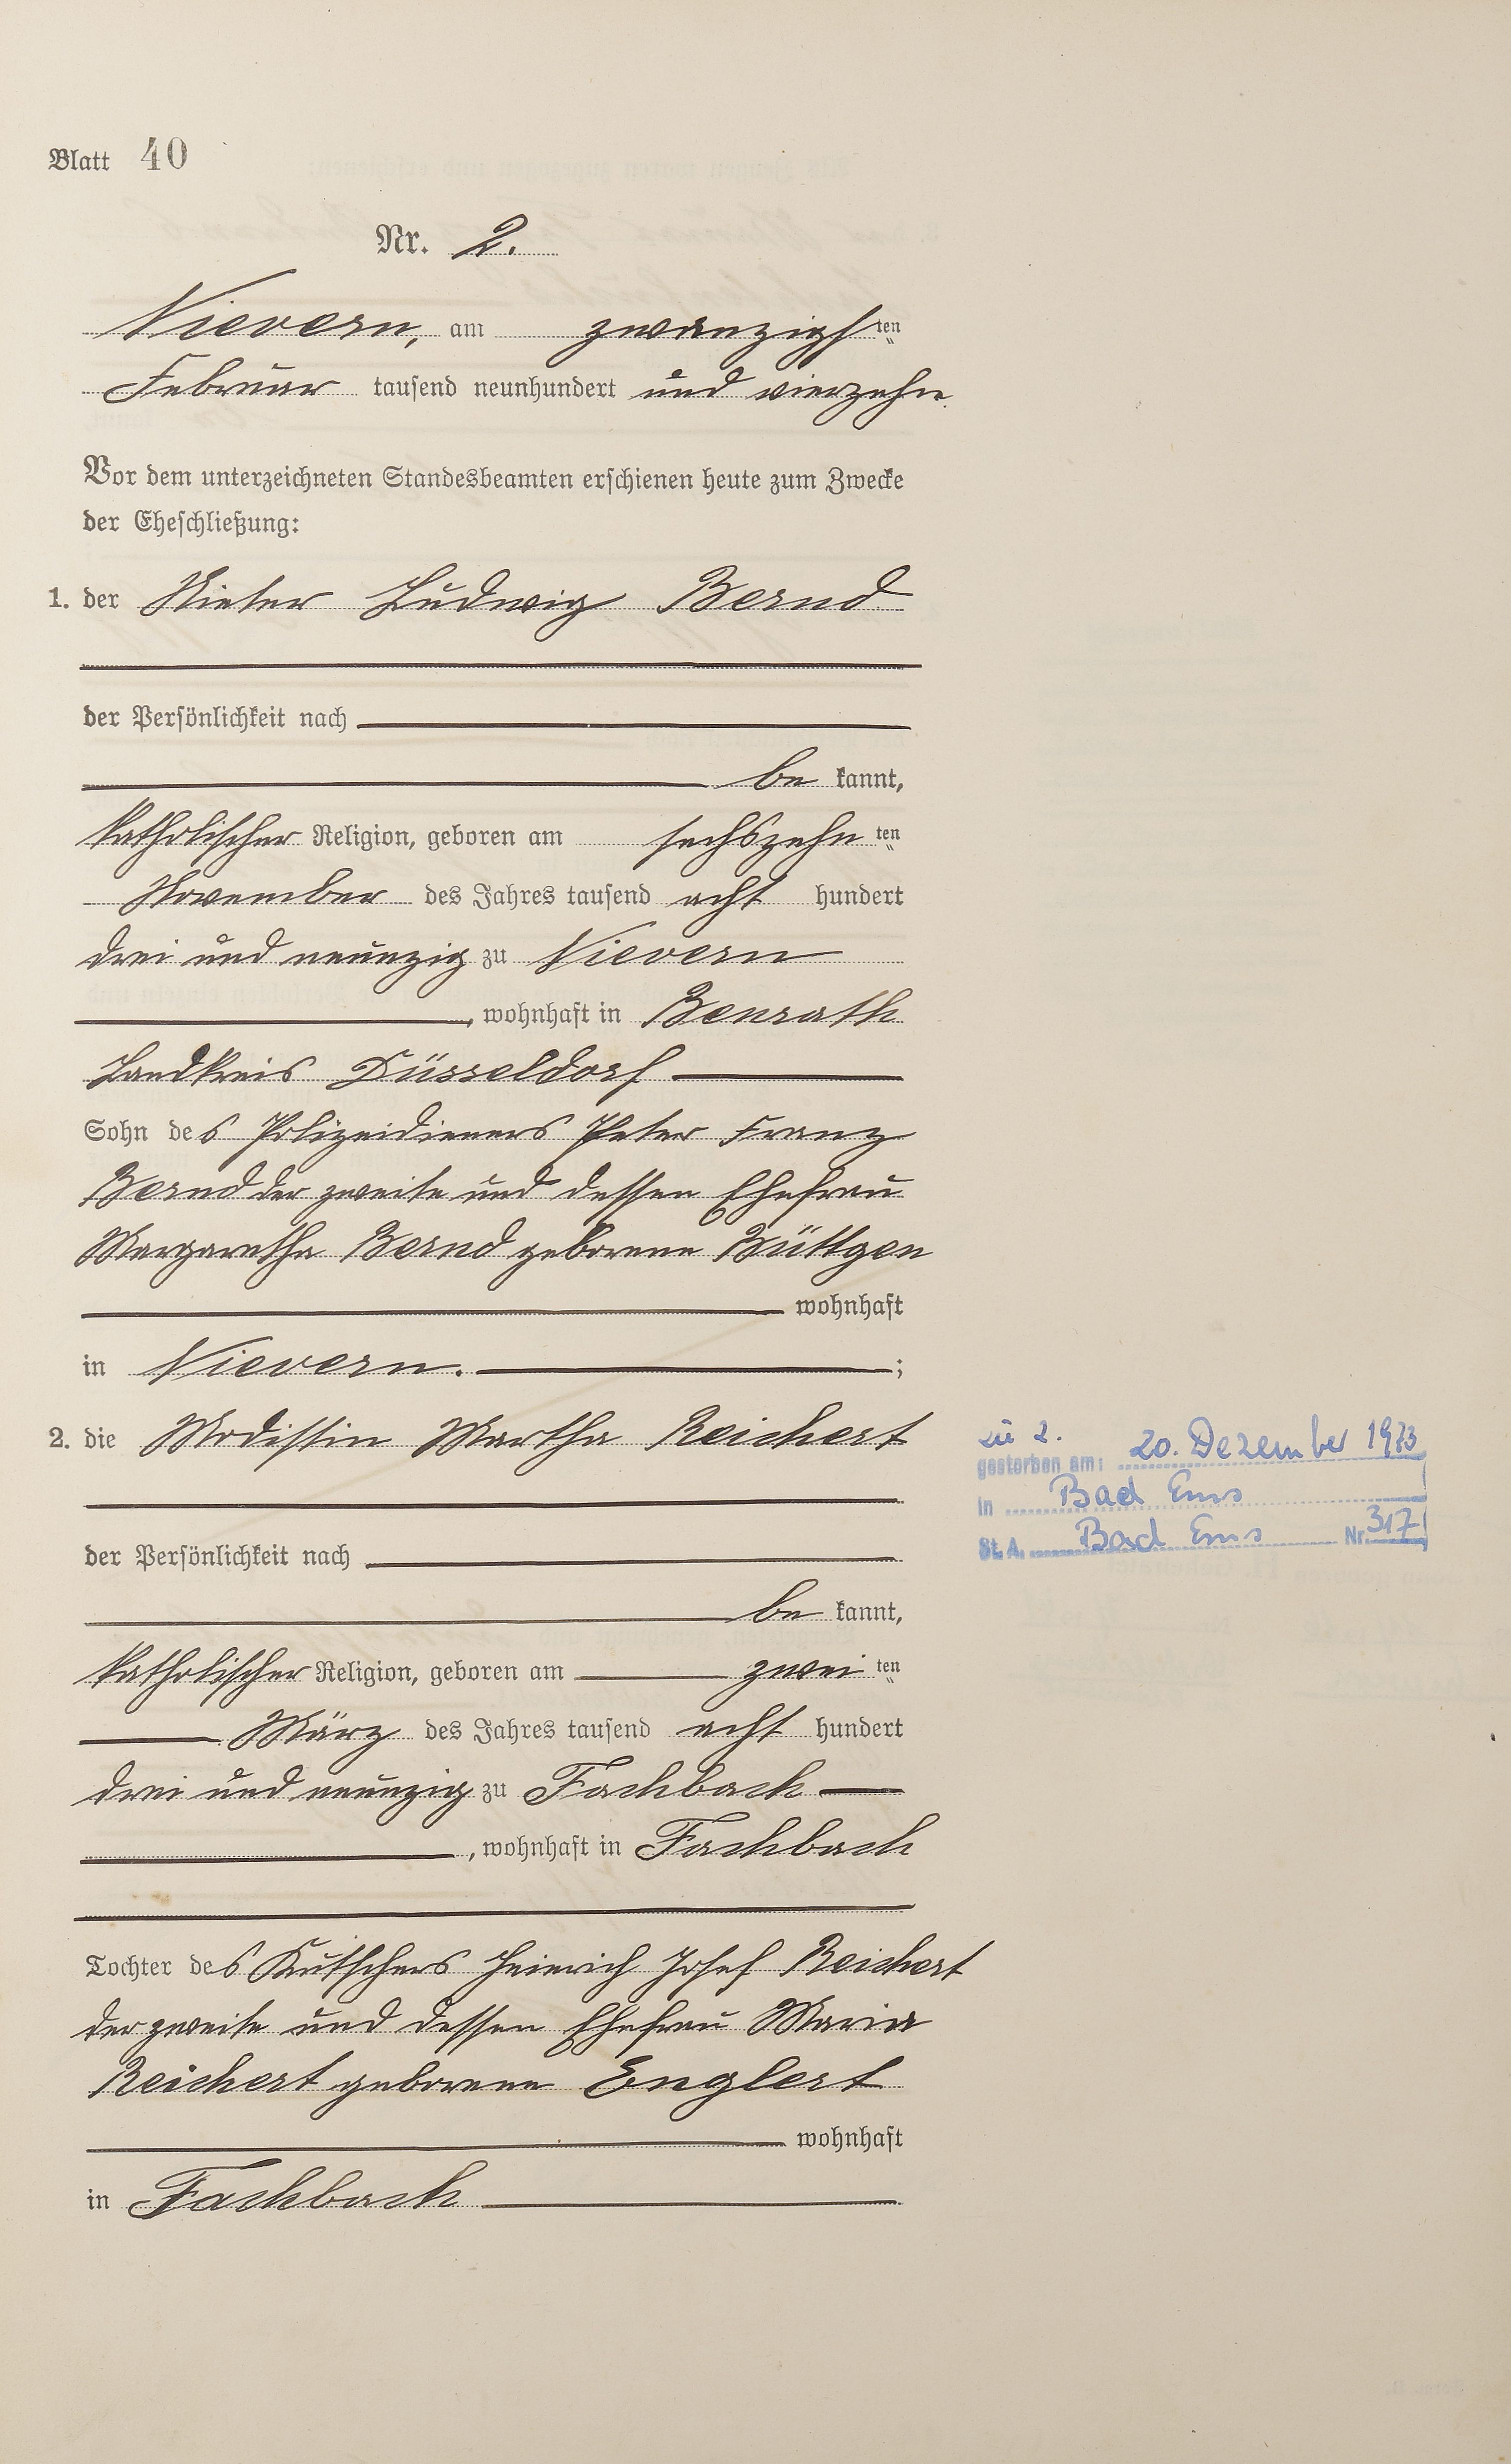 Blatt 40
Nr. 2.
Nievern, am zwanzigsten
Februar tausend neunhundert und vierzehn.
Vor dem unterzeichneten Standesbeamten erschienen heute zum Zwecke
der Eheschließung:
1. der Nieter Ludwig Bernd
der Persönlichkeit nach
be kannt,
katholischer Religion, geboren am sechszehn ten
November des Jahres tausend acht hundert
drei und neunzig zu Nievern
, wohnhaft in Benrath
Landkreis Düsseldorf
Sohn des Polizeidieners Peter Franz
Bernd der zweite und dessen Ehefrau
Margaretha Bernd geborene Büttgen
wohnhaft
in Nievern. ;
2. die Modistin Martha Reichert
zu 2.
gestorben am: 20. Dezember 1973
in Bad Ems
St. A. Bad Ems Nr. 317
der Persönlichkeit nach
be kannt,
katholischer Religion, geboren am zwei ten
März des Jahres tausend acht hundert
drei und neunzig zu Fachbach
, wohnhaft in Fachbach
Tochter des Kutschers Heinrich Josef Reichert
der zweite und dessen Ehefrau Maria
Reichert geborene Englert
wohnhaft
in Fachbach